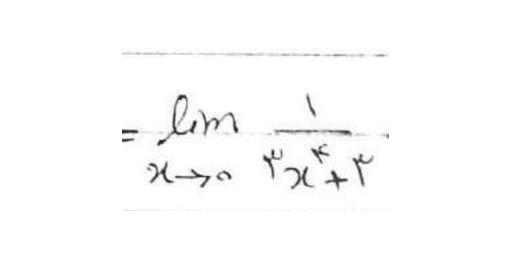 = lim x→0 ۱ / ۳x^۴ + ۳